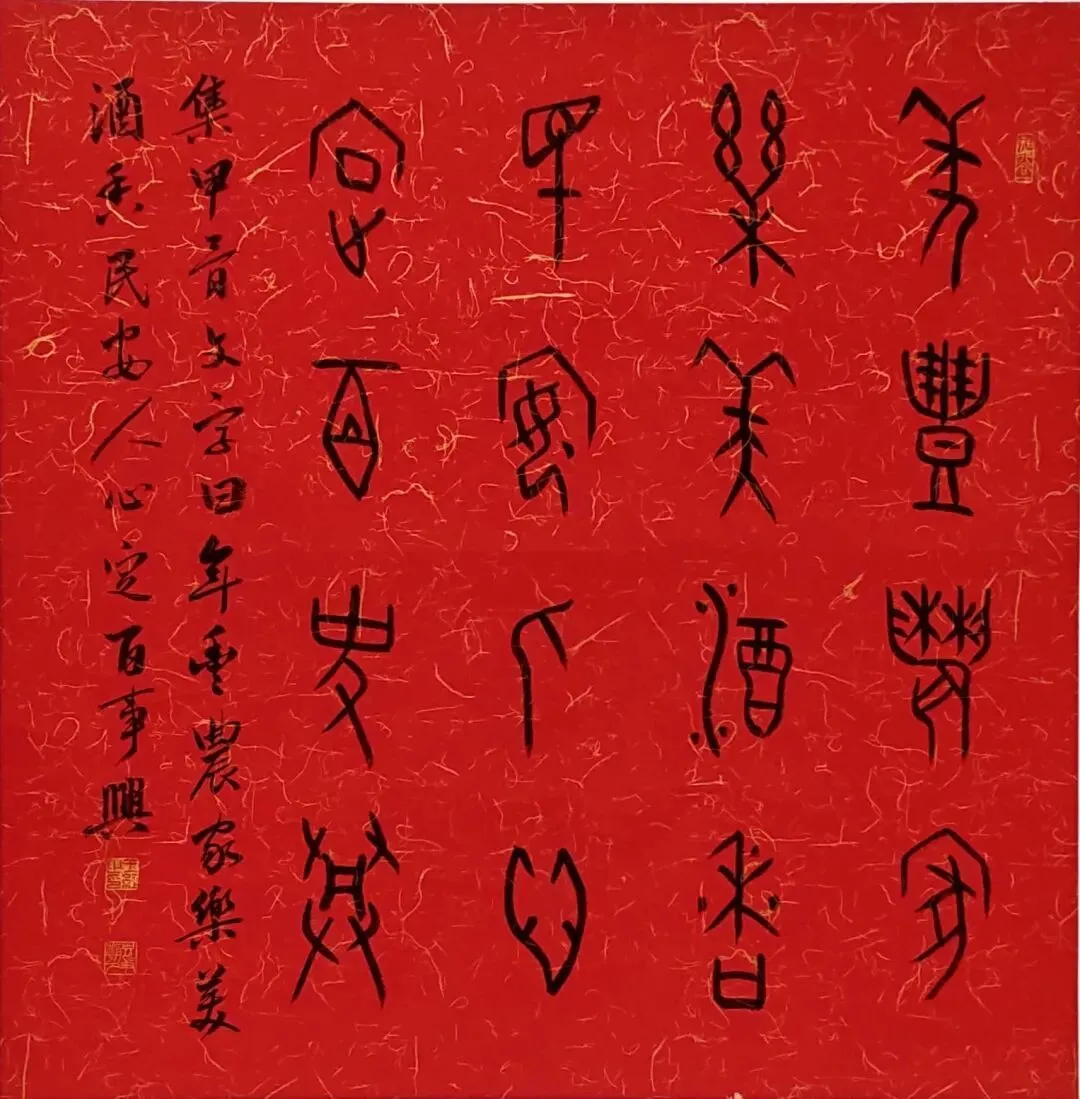 年豐農家
樂美酒香
民安人心
定百事興
集甲骨文字曰年豐農家樂美
酒香民安人心定百事興